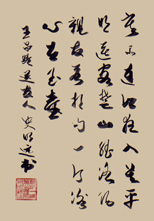 寒雨连江夜入吴平
明送客楚山孤洛阳
親友如相问一片冰
心在玉壶
王昌龄送友人